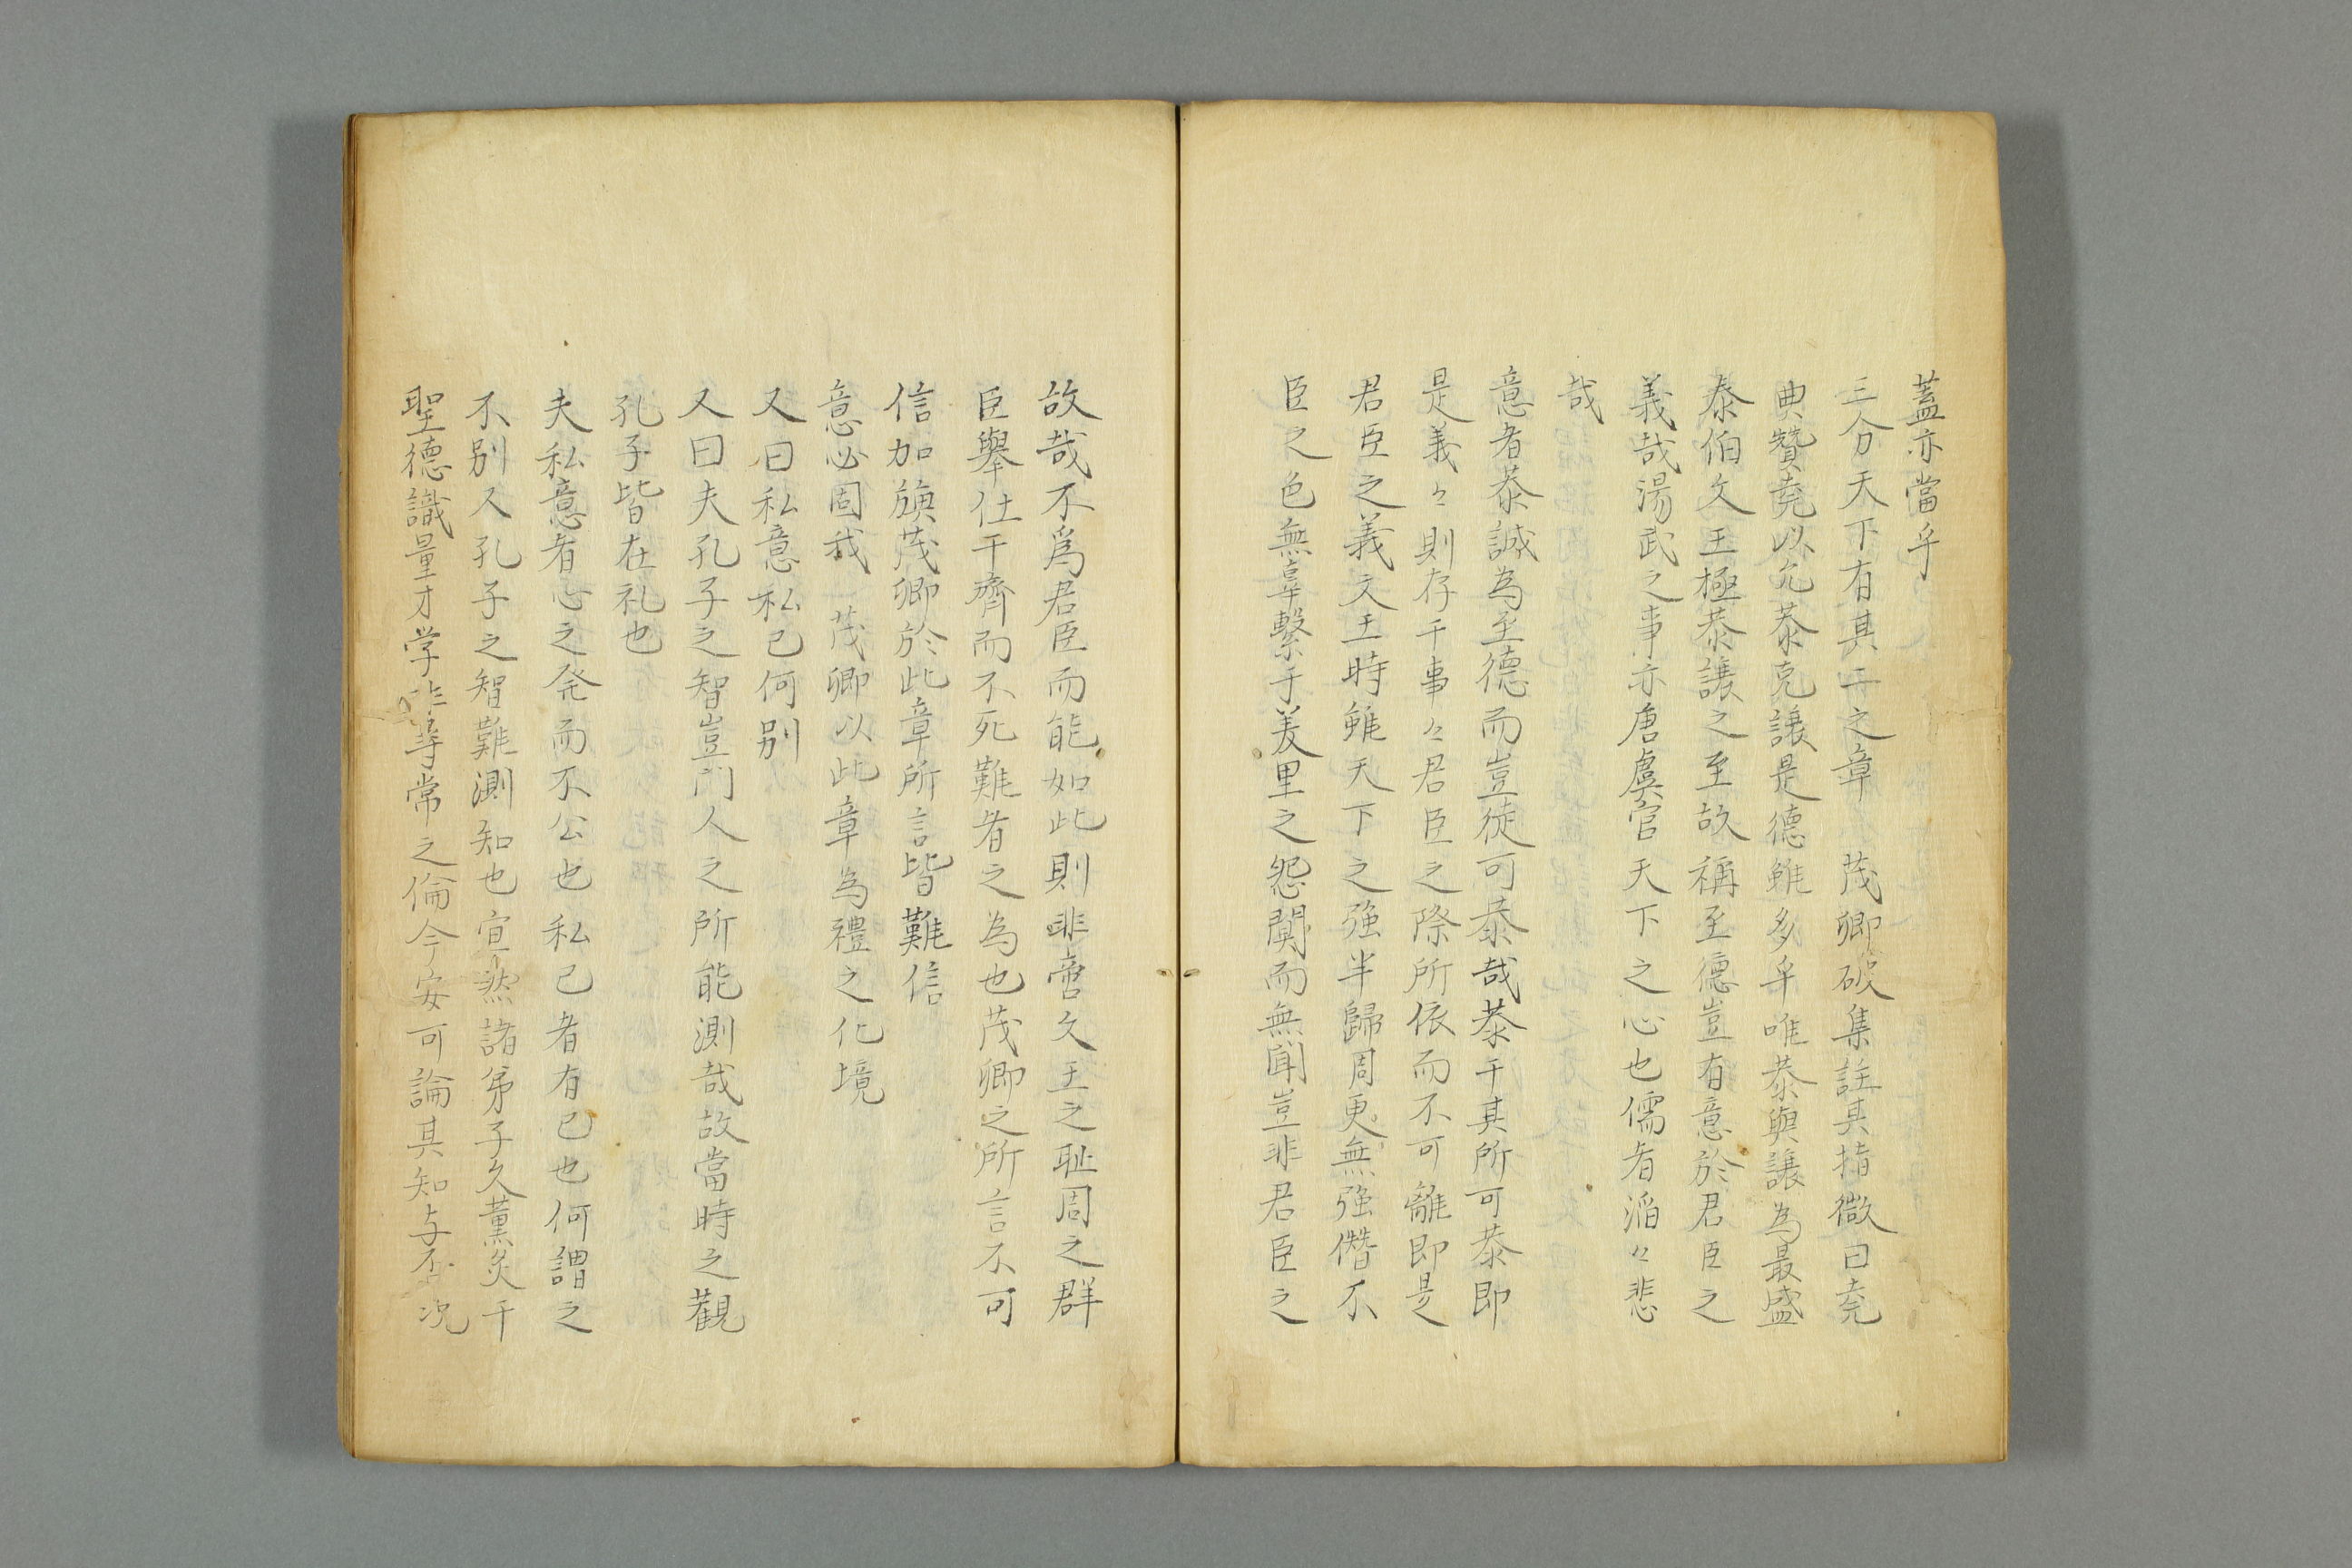 蓋亦當乎
三分天下有其二之章　茂卿破集註其指微曰堯
典贊堯以允恭克讓是德雖多乎唯恭與讓為最盛
泰伯文王極恭讓之至故稱至德豈有意於君臣之
義哉湯武之事亦唐虞官天下之心也儒者滔々悲
哉
意者恭誠為至德而豈徒可恭哉恭于其所可恭即
是義々則存于事々君臣之際所依而不可離即是
君臣之義文王時雖天下之强半歸周更無强僭不
臣之色無辜繫于羑里之怨闃而無聞豈非君臣之
故哉不爲君臣而能如此則非啻文王之耻周之群
臣舉仕于齊而不死難者之為也茂卿之所言不可
信加旃茂卿於此章所言皆難信
意必固我　茂卿以此章為禮之化境
又曰私意私己何別
又曰夫孔子之智豈門人之所能測哉故當時之觀
孔子皆在礼也
夫私意者心之発而不公也私己者有己也何謂之
不別又孔子之智難測知也宜然諸弟子久薫炙于
聖德識量才学非尋常之倫今安可論其知与不況